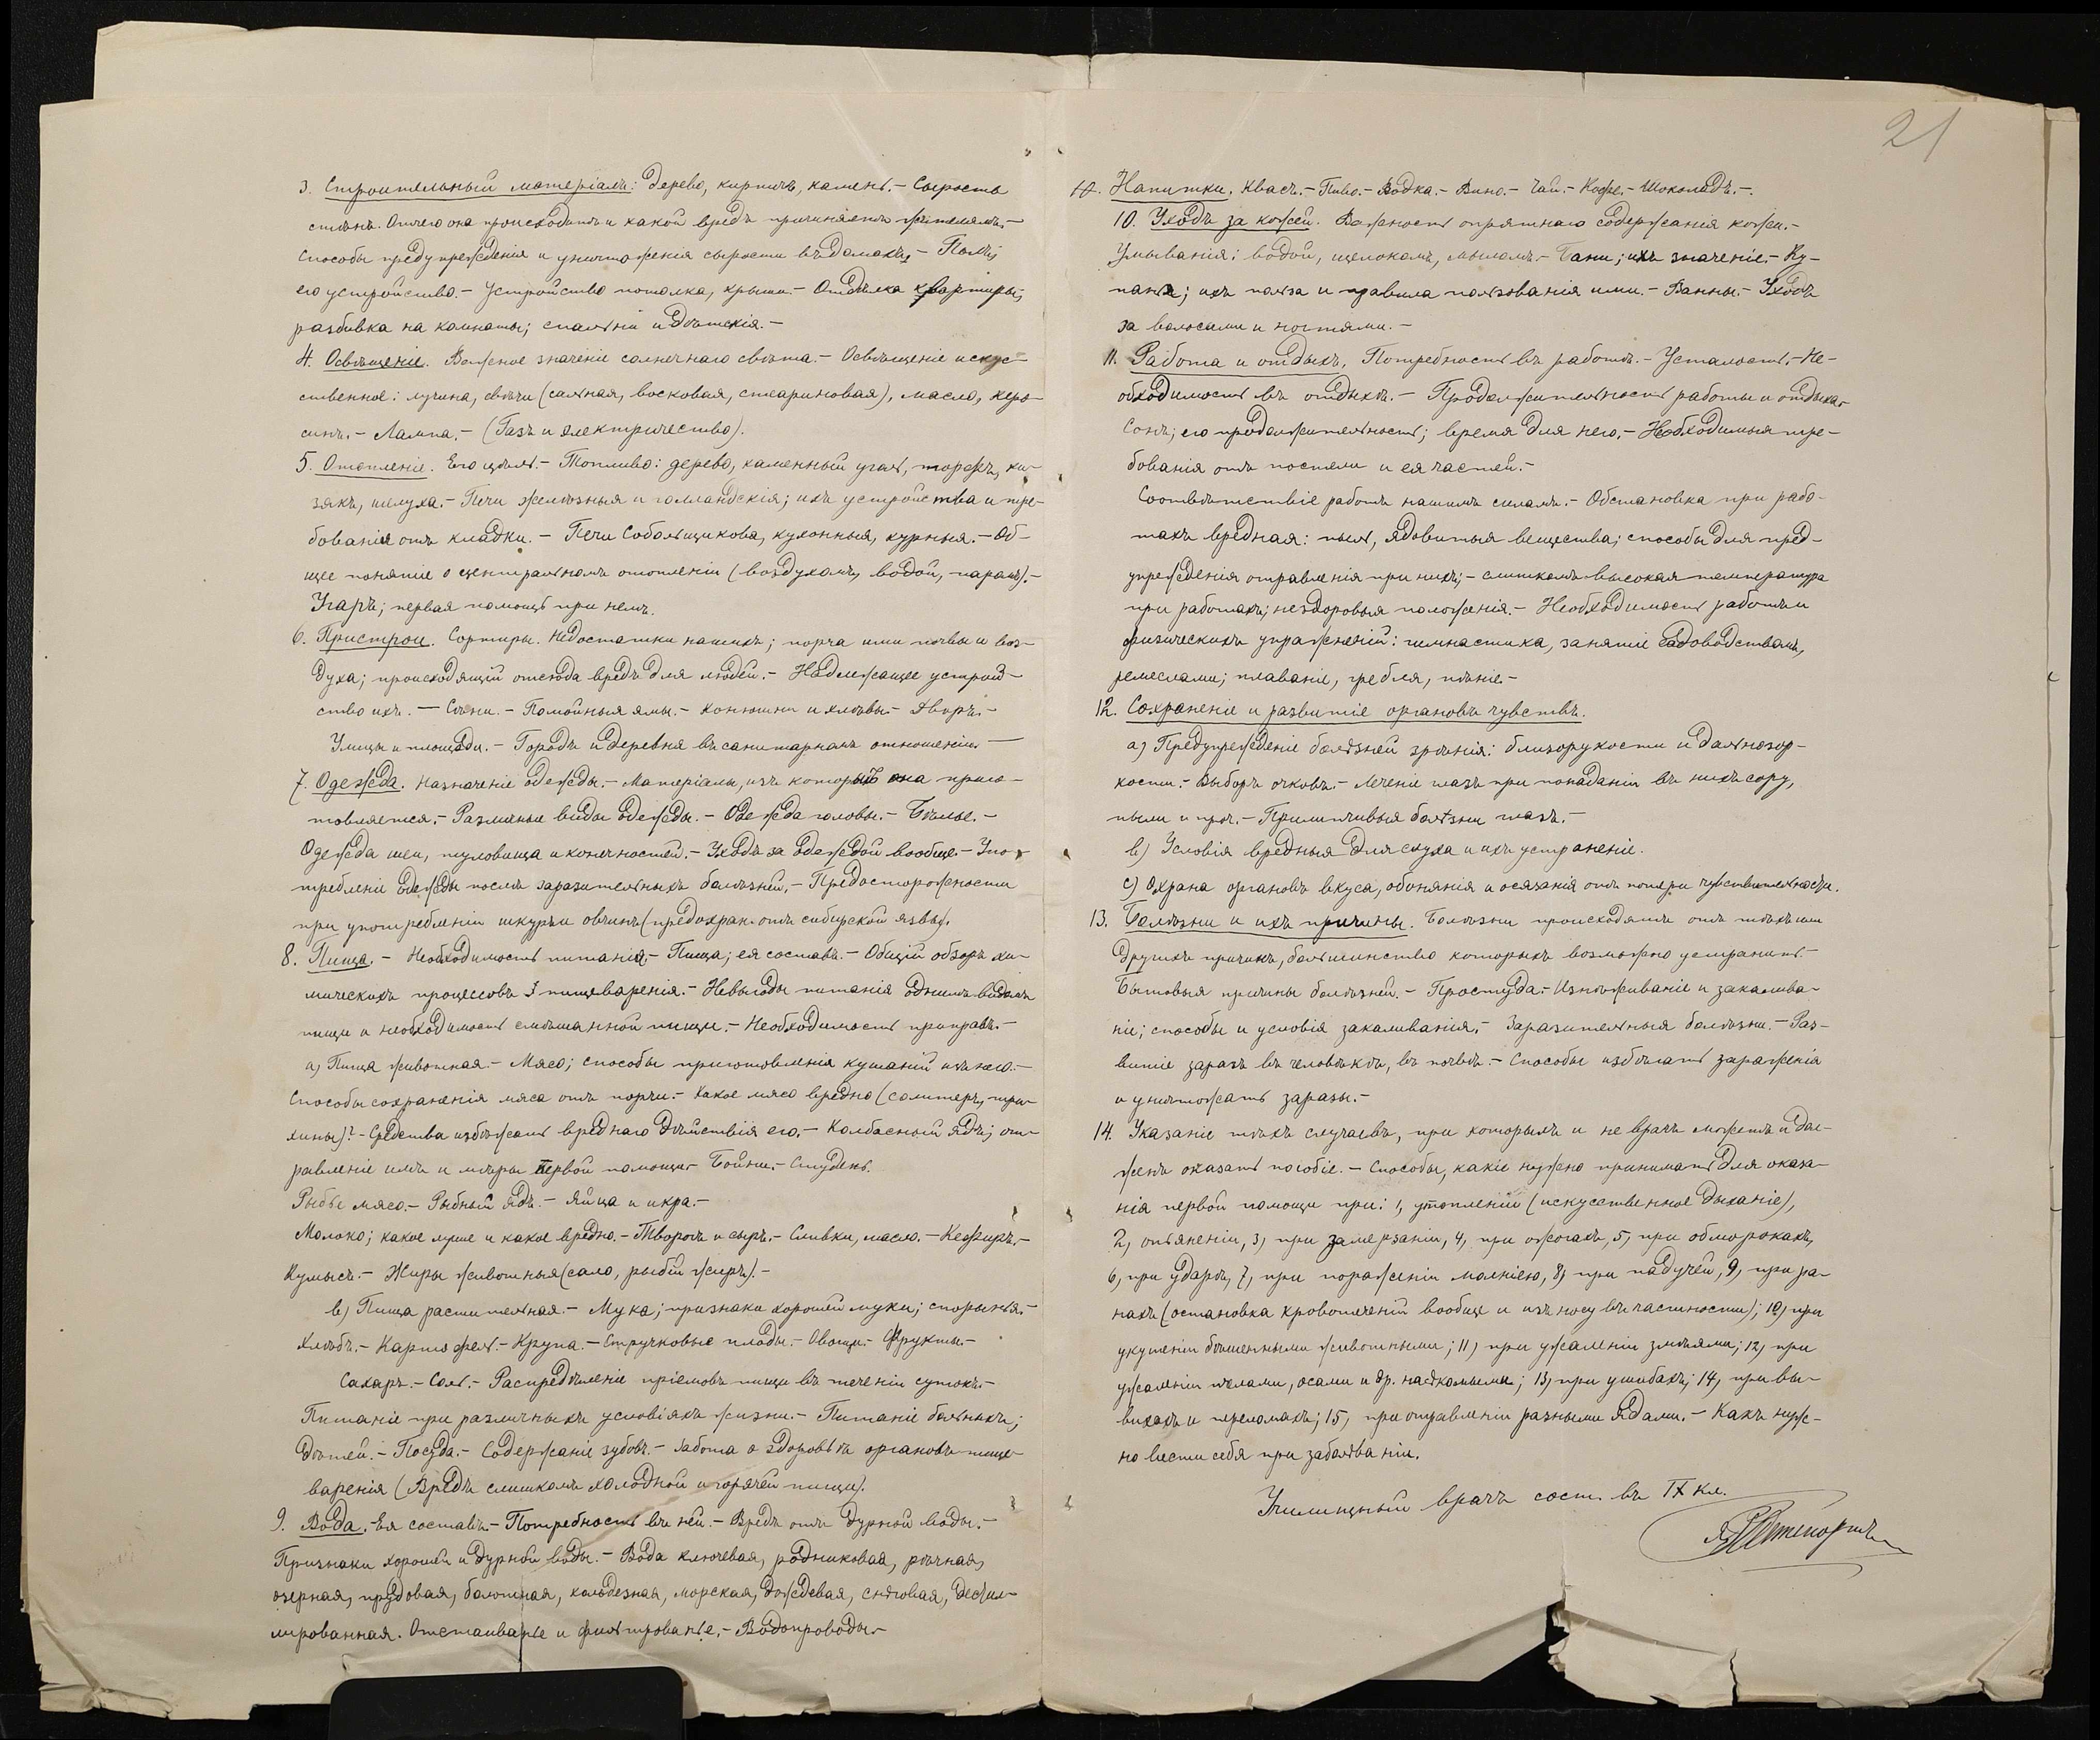 3. Строительный матеріалъ: дерево, кирпичъ, камень. – Сырость
стѣнъ. Отчего она происходитъ и какой вредъ причиняетъ жителямъ. –
Способы предупрежденія и уничтоженія сырости въ домахъ. – Полъ;
его устройство. – Устройство потолка, крыши. – Отдѣлка квартиры;
разбивка на комнаты; спальни и дѣтскія. –
4. Освѣщеніе. Важное значеніе солнечнаго свѣта. – Освѣщеніе искус-
ственное: лучина, свѣчи (сальная, восковая, стеариновая), масло, керо-
синъ. – Лампа. – (Газъ и электричество).
5. Отопленіе. Его цѣль. – Топливо: дерево, каменный уголь, торфъ, ки-
зякъ, шелуха. – Печи желѣзныя и голландскія; ихъ устройства и тре-
бованія отъ кладки. – Печи Собольщикова, кухонныя, курныя. – Об-
щее понятіе о центральномъ отопленіи (воздухомъ, водой, паромъ). –
Угаръ; первая помощь при немъ.
6. Пристрои. Сортиры. Недостатки нашихъ; порча ими почвы и воз-
духа; происходящій отсюда вредъ для людей. – Надлежащее устрой-
ство ихъ. – Сѣни. – Помойныя ямы. – Конюшни и хлѣвы. – Дворъ. –
Улицы и площади. – Городъ и деревня въ санитарномъ отношеніи. –
7. Одежда. Назначеніе одежды. – Матеріалы, изъ которыхъ она приго-
товляется. – Различные виды одежды. – Одежда головы. – Бѣлье. –
Одежда шеи, туловища и конечностей. – Уходъ за одеждой вообще. – Упо-
требленіе одежды послѣ заразительныхъ болѣзней. – Предосторожности
при употребленіи шкуръ и овчинъ (предохран. отъ сибирской язвы).
8. Пища. – Необходимость питанія. – Пища; ея составъ. – Общій обзоръ хи-
мическихъ процессовъ пищеваренія. – Невыгоды питанія однимъ видомъ
пищи и необходимость смѣшанной пищи. – Необходимость приправъ. –
а) Пища животная. – Мясо; способы приготовленія кушаній изъ него. –
Способы сохраненія мяса отъ порчи. – Какое мясо вредно (солитеръ, три-
хины)? – Средства избѣжать вреднаго дѣйствія его. – Колбасный ядъ; от-
равленіе имъ и мѣры первой помощи. – Бойни. – Студень.
Рыбье мясо. – Рыбный ядъ. – Яйца и икра. –
Молоко; какое лучше и какое вредно. – Творогъ и сыръ. – Сливки, масло. – Кефиръ. –
Кумысъ. – Жиры животныя (сало, рыбій жиръ). –
в) Пища растительная. – Мука; признаки хорошей муки; спорынья. –
Хлѣбъ. – Картофель. – Крупа. – Стручковые плоды. – Овощи. – Фрукты. –
Сахаръ. – Соль. – Распредѣленіе пріемовъ пищи въ теченіи сутокъ. –
Питаніе при различныхъ условіяхъ жизни. – Питаніе больныхъ;
дѣтей. – Посуда. – Содержаніе зубовъ. – Забота о здоровьѣ органовъ пище-
варенія (Вредъ слишкомъ холодной и горячей пищи).
9. Вода. – Ея составъ. – Потребность въ ней. – Вредъ отъ дурной воды. –
Признаки хорошей и дурной воды. – Вода ключевая, родниковая, рѣчная,
озерная, прудовая, болотная, колодезная, морская, дождевая, снѣговая, дестил-
лированная. Отстаиванье и фильтрованье. – Водопроводы. –
21
10. Напитки. Квасъ. – Пиво. – Водка. – Вино. – Чай. – Кофе. – Шоколадъ. –
10. Уходъ за кожей. Важность опрятнаго содержанія кожи. –
Умыванія: водой, щелокомъ, мыломъ. – Бани; ихъ значеніе. – Ку-
панья; ихъ польза и правила пользованія ими. – Ванны. – Уходъ
за волосами и ногтями. –
11. Работа и отдыхъ. Потребность въ работѣ. – Усталость. – Не-
обходимость въ отдыхѣ. – Продолжительность работы и отдыха. –
Сонъ; его продолжительность; время для него. – Необходимыя тре-
бованія отъ постели и ея частей. –
Соотвѣтствіе работъ нашимъ силамъ. – Обстановка при рабо-
тахъ вредная: пыль, ядовитыя вещества; способы для пред-
упрежденія отравленія при нихъ; – слишкомъ высокая температура
при работахъ; нездоровыя положенія. – Необходимость работъ и
физическихъ упражненій: гимнастика, занятіе садоводствомъ,
ремеслами; плаваніе, гребля, пѣніе. –
12. Сохраненіе и развитіе органовъ чувствъ.
а) Предупрежденіе болѣзней зрѣнія: близорукости и дальнозор-
кости. – Выборъ очковъ. – Леченіе глазъ при попаданіи въ нихъ сору,
пыли и проч. – Прилипчивыя болѣзни глазъ. –
в) Условія вредныя для слуха и ихъ устраненіе.
с) Охрана органовъ вкуса, обонянія и осязанія отъ потери чувствительности.
13. Болѣзни и ихъ причины. Болѣзни происходятъ отъ тѣхъ или
другихъ причинъ, большинство которыхъ возможно устранить. –
Бытовыя причины болѣзней. – Простуда. – Изнѣживаніе и закалива-
ніе; способы и условія закаливанія. – Заразительныя болѣзни. – Раз-
витіе заразъ въ человѣкѣ, въ почвѣ. – Способы избѣгать зараженія
и уничтожать заразы. –
14. Указаніе тѣхъ случаевъ, при которыхъ и не врачъ можетъ и дол-
женъ оказать пособіе. – Способы, какіе нужно принимать для оказа-
нія первой помощи при: 1, утопленіи (искусственное дыханіе),
2, опьяненіи, 3, при замерзаніи, 4, при ожогахъ, 5, при обморокахъ,
6, при ударѣ, 7, при пораженіи молніею, 8, при падучей, 9, при ра-
нахъ (остановка кровотеченій вообще и изъ носу въ частности); 10, при
укушеніи бѣшенными животными; 11, при ужаленіи змѣями; 12, при
ужаленіи пчелами, осами и др. насѣкомыми; 13, при ушибахъ; 14, при вы-
вихахъ и переломахъ; 15, при отравленіи разными ядами. – Какъ нуж-
но вести себя при заболѣваніи.
Училищный врачъ сост. въ IX кл.